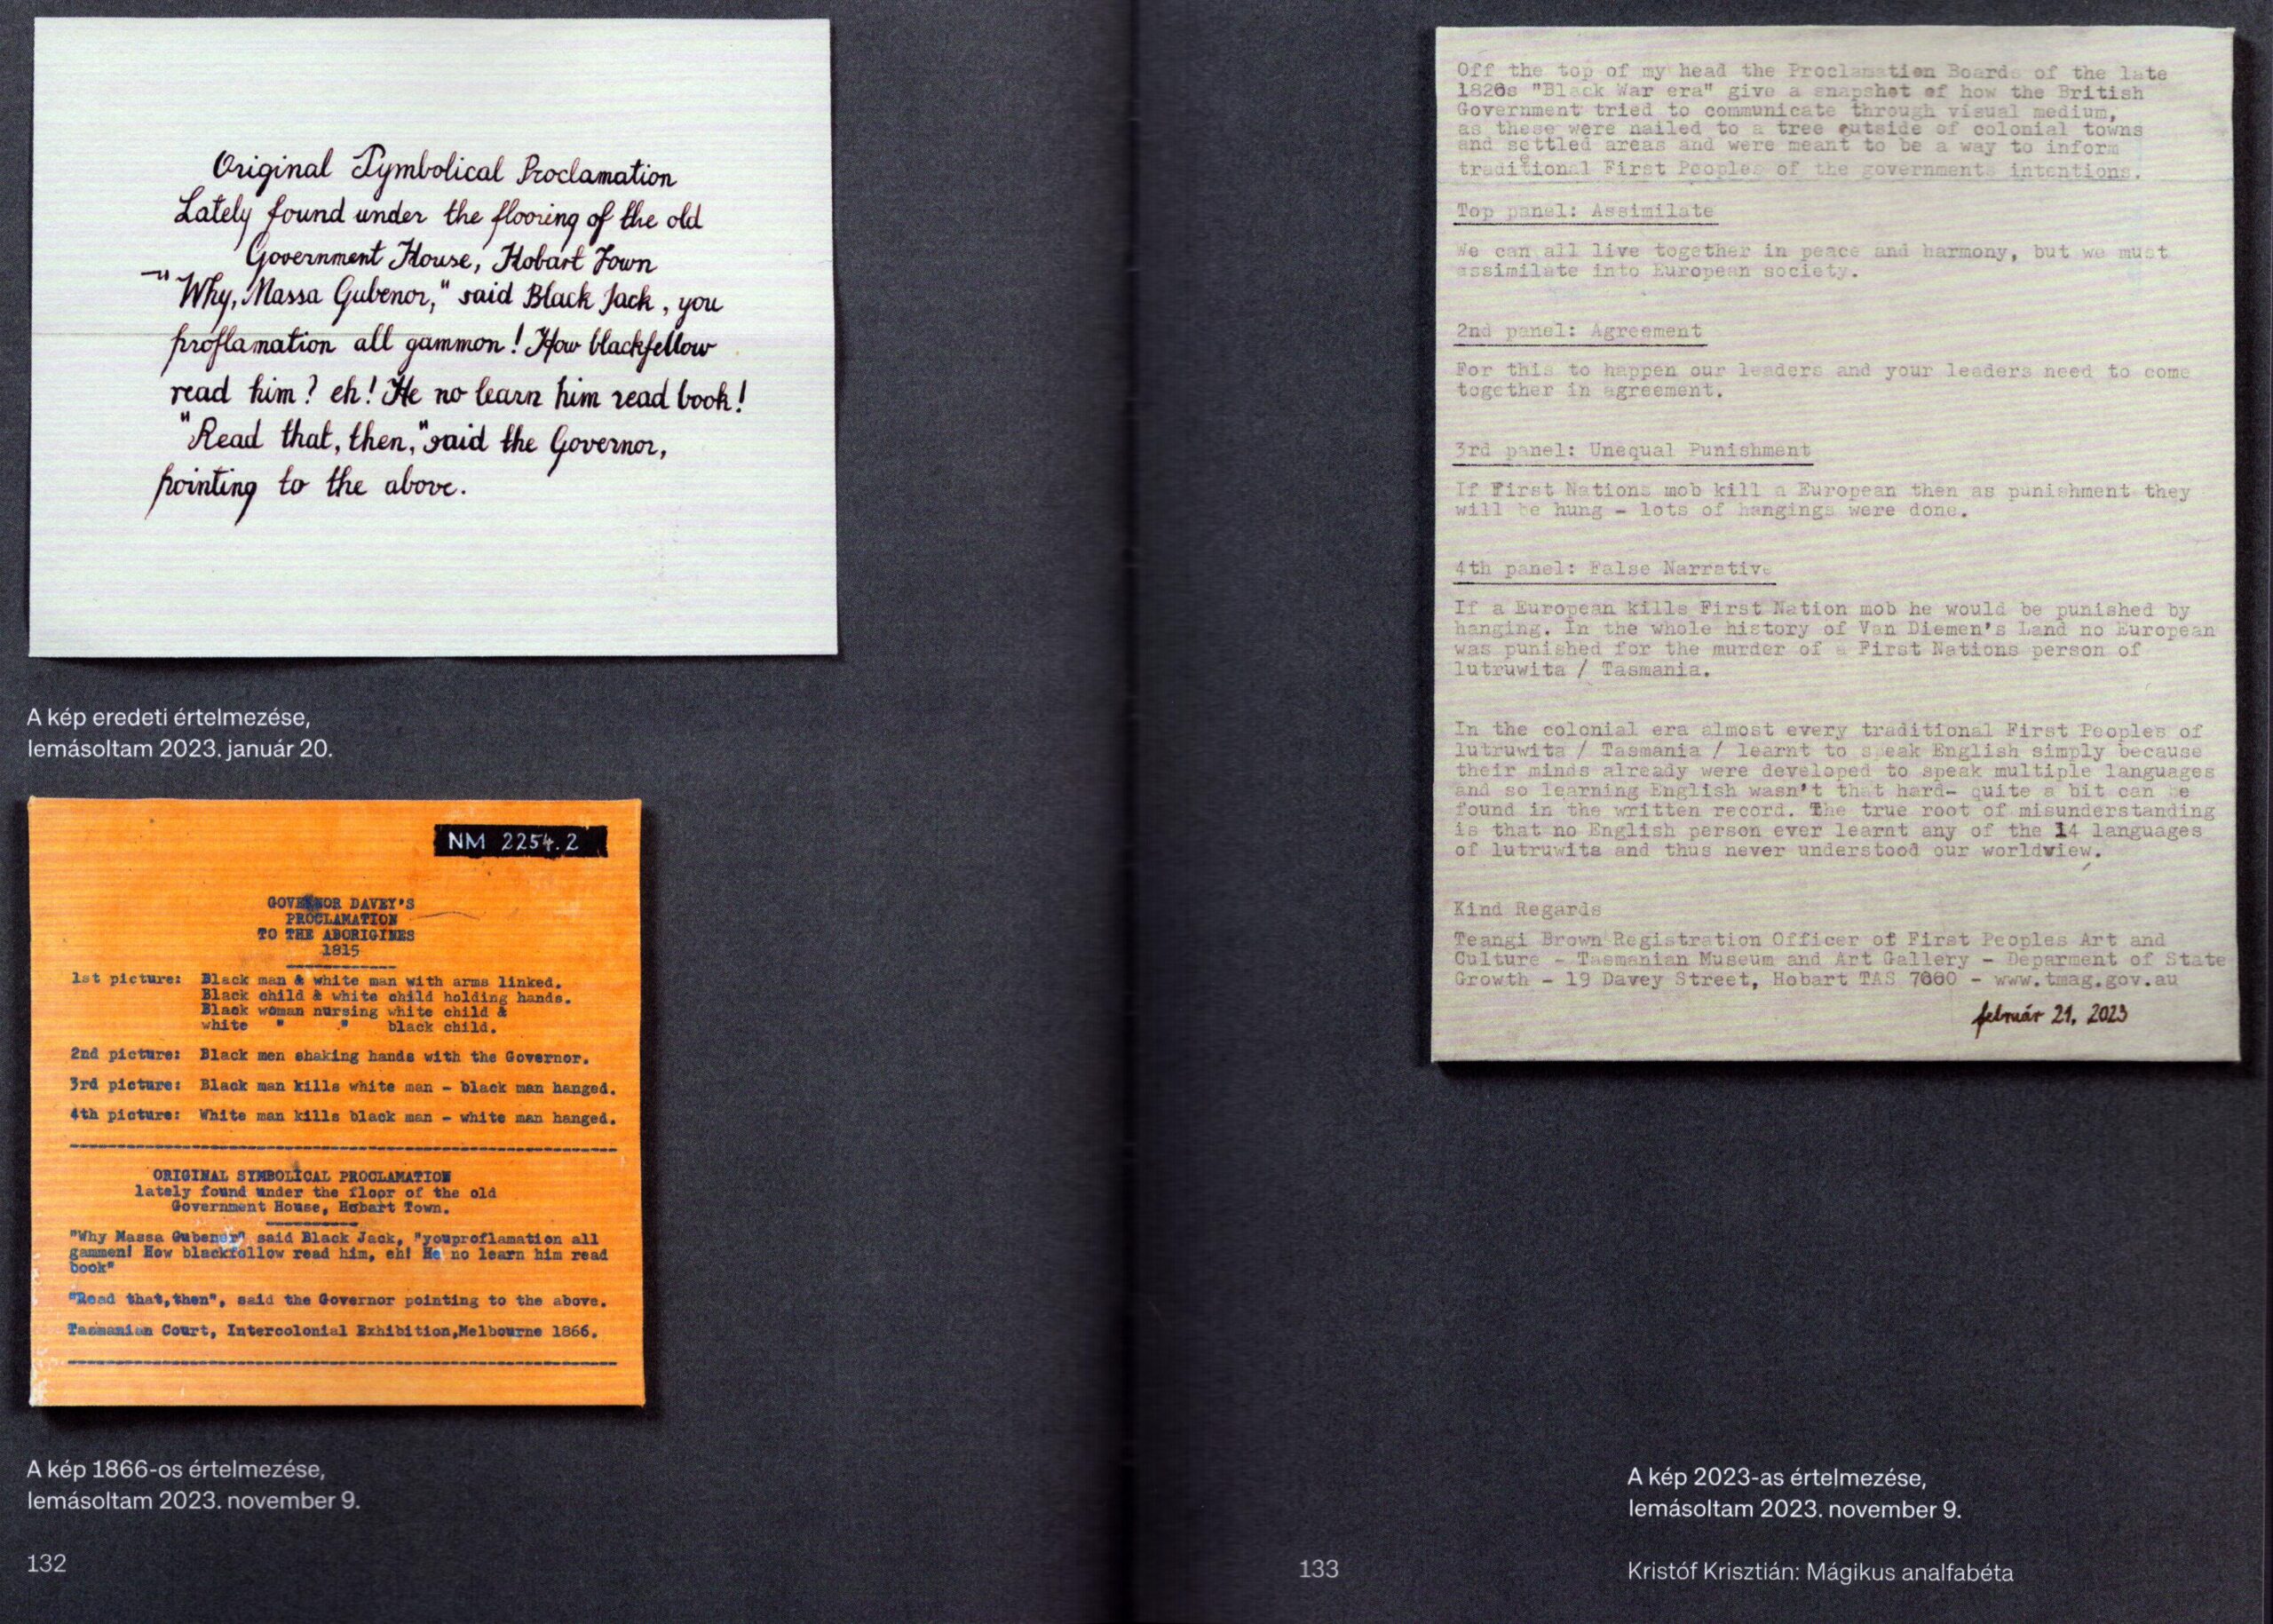 Original Symbolical Proclamation
Lately found under the flooring of the old
Government House, Hobart Town
–" Why, Massa Gubenor," said Black Jack, you
proflamation all gammon! How blackfellow
read him? eh! He no learn him read book!
"Read that, then," said the Governor,
pointing to the above.
A kép eredeti értelmezése,
lemásoltam 2023. január 20.
NM 2254.2
GOVERNOR DAVEY'S
PROCLAMATION
TO THE ABORIGINES
1815
1st picture: Black man & white man with arms linked.
Black child & white child holding hands.
Black woman nursing white child &
white " " black child.
2nd picture: Black men shaking hands with the Governor.
3rd picture: Black man kills white man - black man hanged.
4th picture: White man kills black man - white man hanged.
ORIGINAL SYMBOLICAL PROCLAMATION
lately found under the floor of the old
Government House, Hobart Town.
"Why Massa Gubenor" said Black Jack, "youproflamation all
gammen! How blackfellow read him, eh! He no learn him read
book"
"Read that,then", said the Governor pointing to the above.
Tasmanian Court, Intercolonial Exhibition,Melbourne 1866.
A kép 1866-os értelmezése,
lemásoltam 2023. november 9.
132
Off the top of my head the Proclamation Boards of the late
1820s "Black War era" give a snapshot of how the British
Government tried to communicate through visual medium,
as these were nailed to a tree outside of colonial towns
and settled areas and were meant to be a way to inform
traditional First Peoples of the governments intentions.
Top panel: Assimilate
We can all live together in peace and harmony, but we must
assimilate into European society.
2nd panel: Agreement
For this to happen our leaders and your leaders need to come
together in agreement.
3rd panel: Unequal Punishment
If First Nations mob kill a European then as punishment they
will be hung - lots of hangings were done.
4th panel: False Narrative
If a European kills First Nation mob he would be punished by
hanging. In the whole history of Van Diemen's Land no European
was punished for the murder of a First Nations person of
lutruwita / Tasmania.
In the colonial era almost every traditional First Peoples of
lutruwita / Tasmania / learnt to speak English simply because
their minds already were developed to speak multiple languages
and so learning English wasn't that hard- quite a bit can be
found in the written record. The true root of misunderstanding
is that no English person ever learnt any of the 14 languages
of lutruwita and thus never understood our worldview.
Kind Regards
Teangi Brown Registration Officer of First Peoples Art and
Culture - Tasmanian Museum and Art Gallery - Deparment of State
Growth - 19 Davey Street, Hobart TAS 7000 - www.tmag.gov.au
február 21, 2023
A kép 2023-as értelmezése,
lemásoltam 2023. november 9.
133
Kristóf Krisztián: Mágikus analfabéta